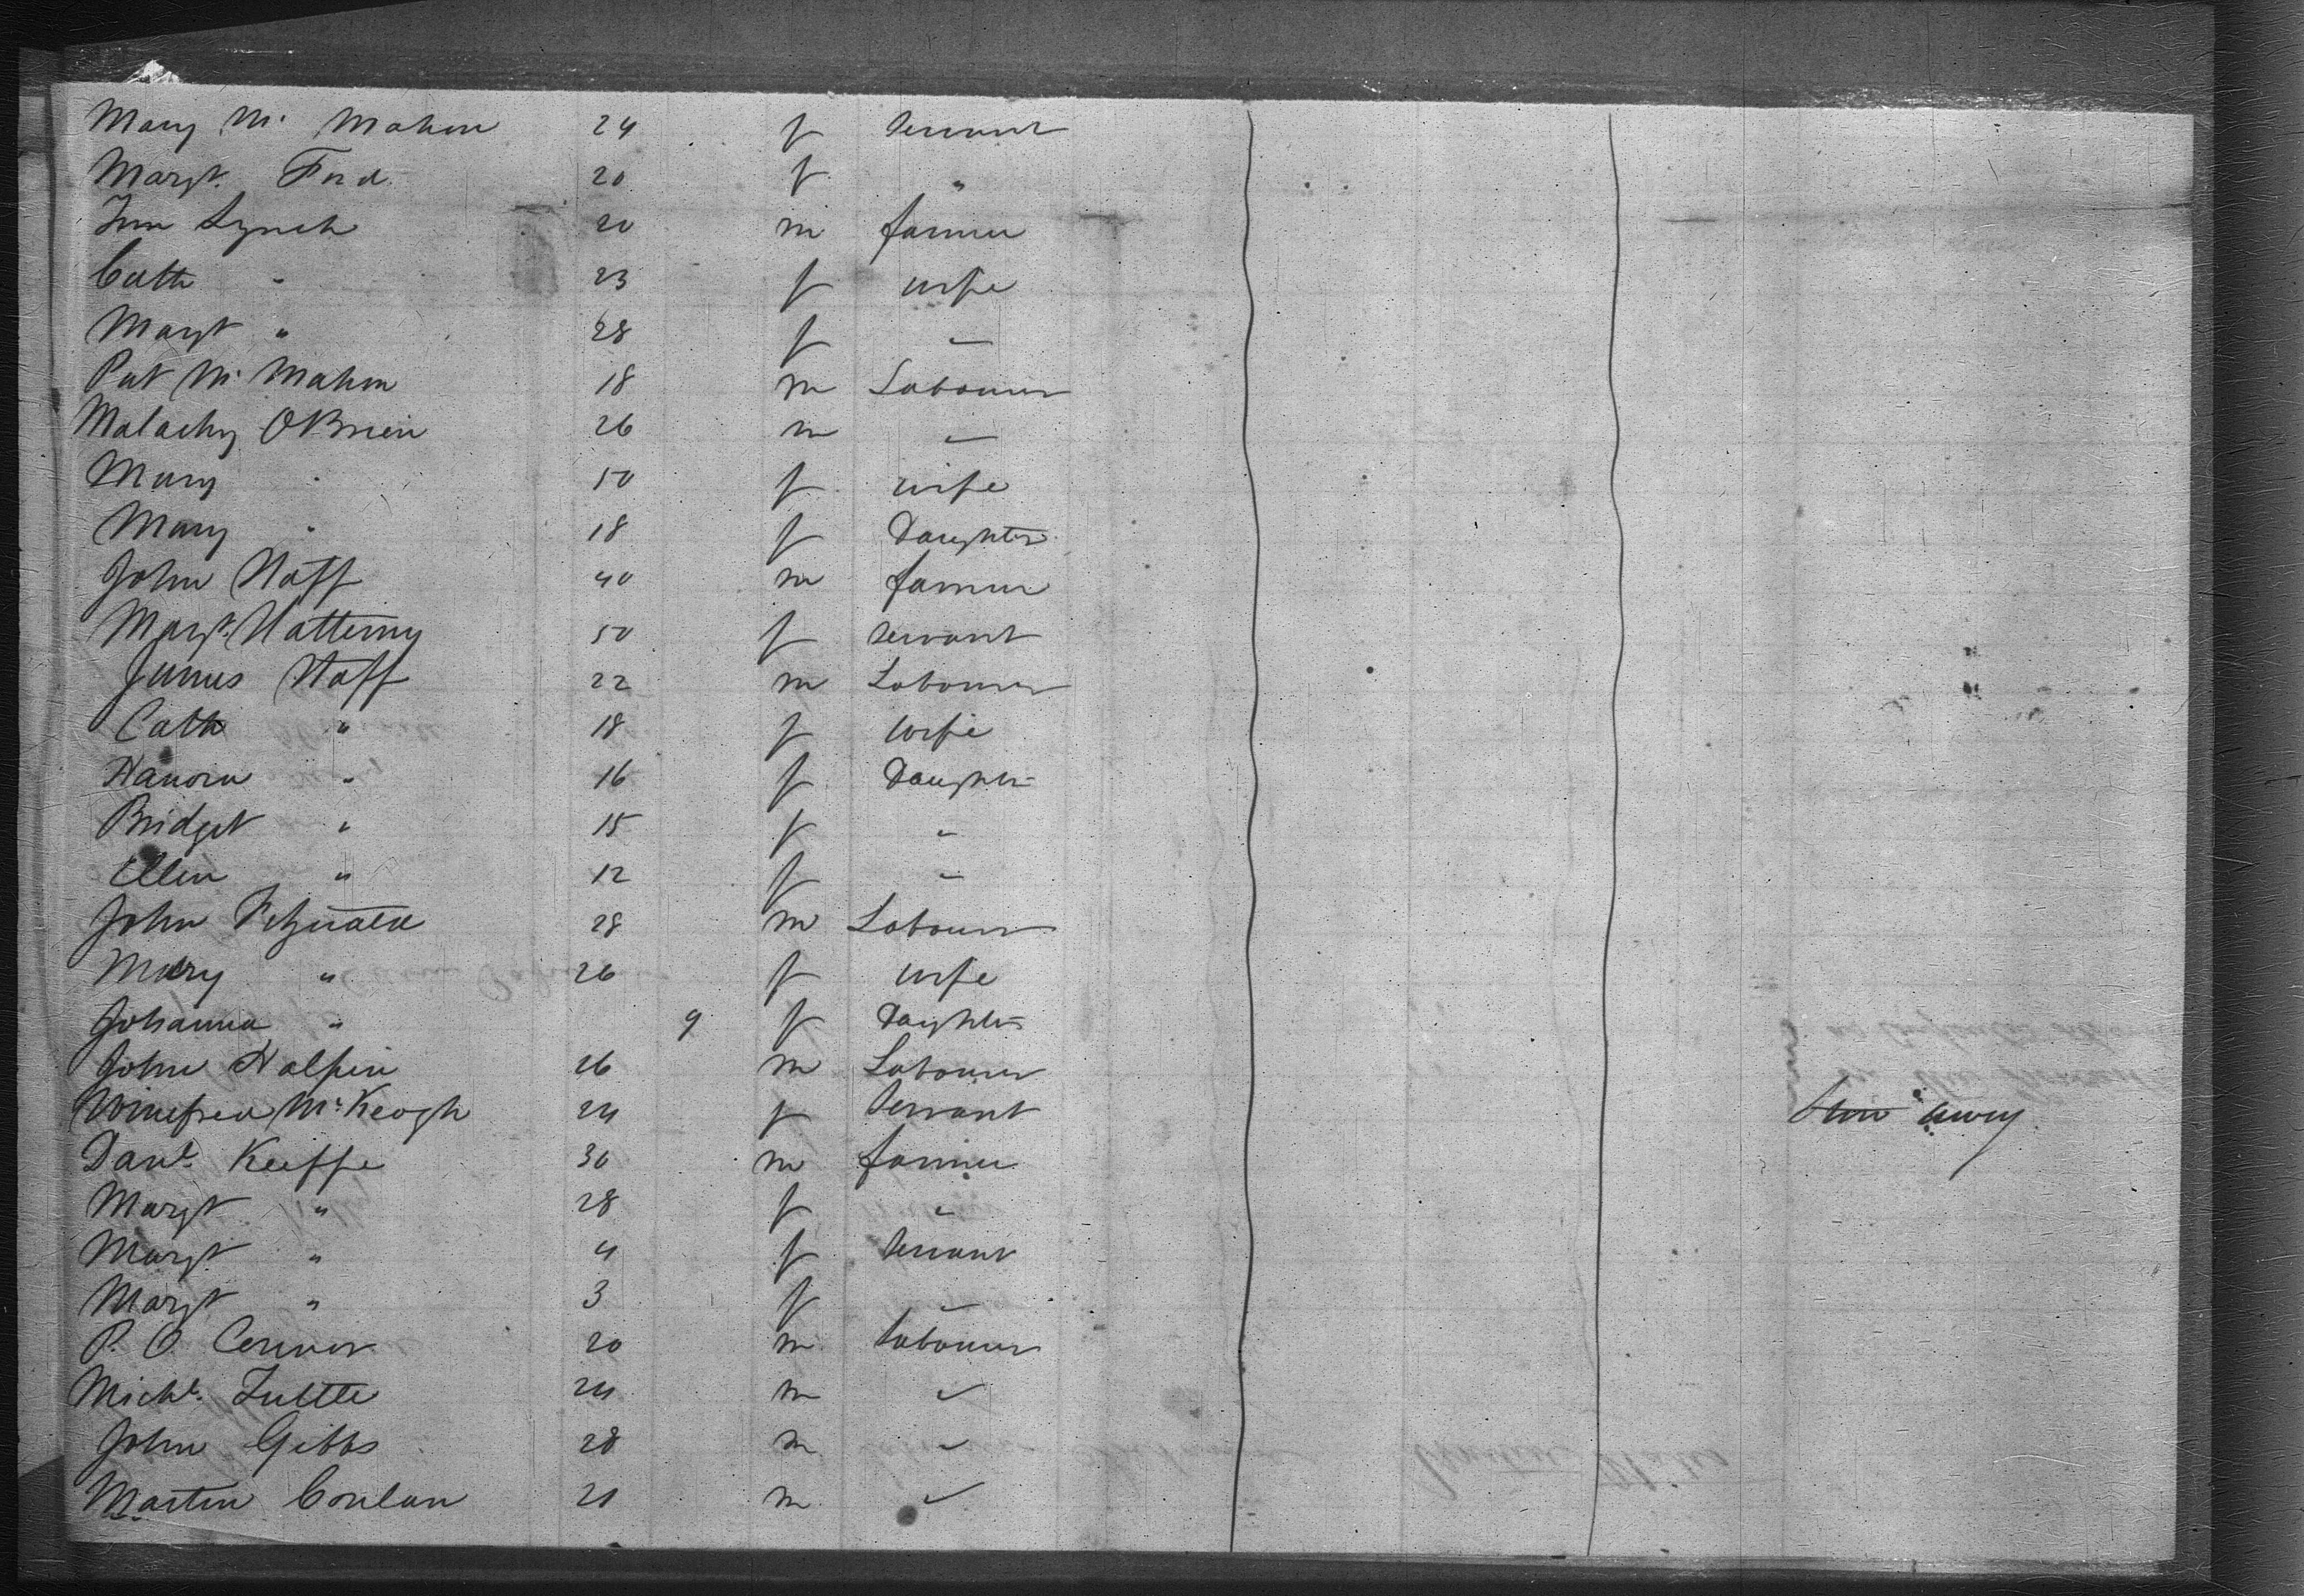 Mary Mc Mahon 24 f Servant
Margt. Ford 20 f "
Lynch 20 m farmer
Cath " 23 f wife
Margt " 28 f "
Pat Mc Mahon 18 m Labourer
Malachy OBrien 26 m "
Mary " 50 f wife
Mary " 18 f Daughter
John 40 m farmer
Margt. 50 f Servant
James 22 m Labourer
Cath " 18 f wife
Hanora " 16 f Daughter
Bridget " 15 f "
Ellen " 12 f "
John 28 m Labourer
Mary " 26 f wife
Johanna " 9 f Daughter
John Halpin 26 m Labourer
Winefred Mc Keogh 24 f Servant
Danl. Keiffe 30 m farmer
Margt " 28 f "
Margt " 4 f Servant
Margt " 3 f "
P. O Connor 20 m Labourer
Michl. 24 m "
John Gibbs 28 m "
Martin Conlan m "